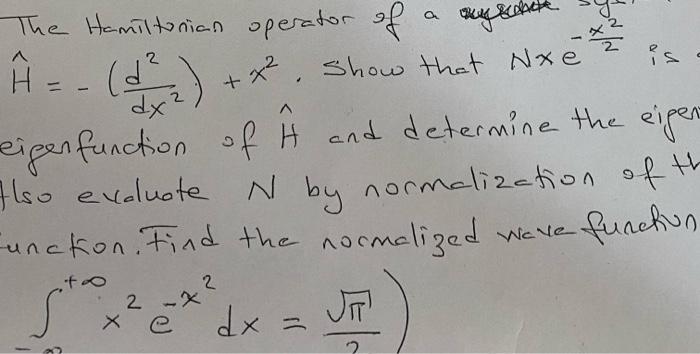 The Hamiltonian operator of a
Ĥ = - (d²/dx²) + x². Show that Nxe^(-x²/2) is
eigenfunction of Ĥ and determine the eigen
Also evaluate N by normalization of th
unction. Find the normalized wave function
∫_{-∞}^{+∞} x² e^{-x²} dx = √π/2)